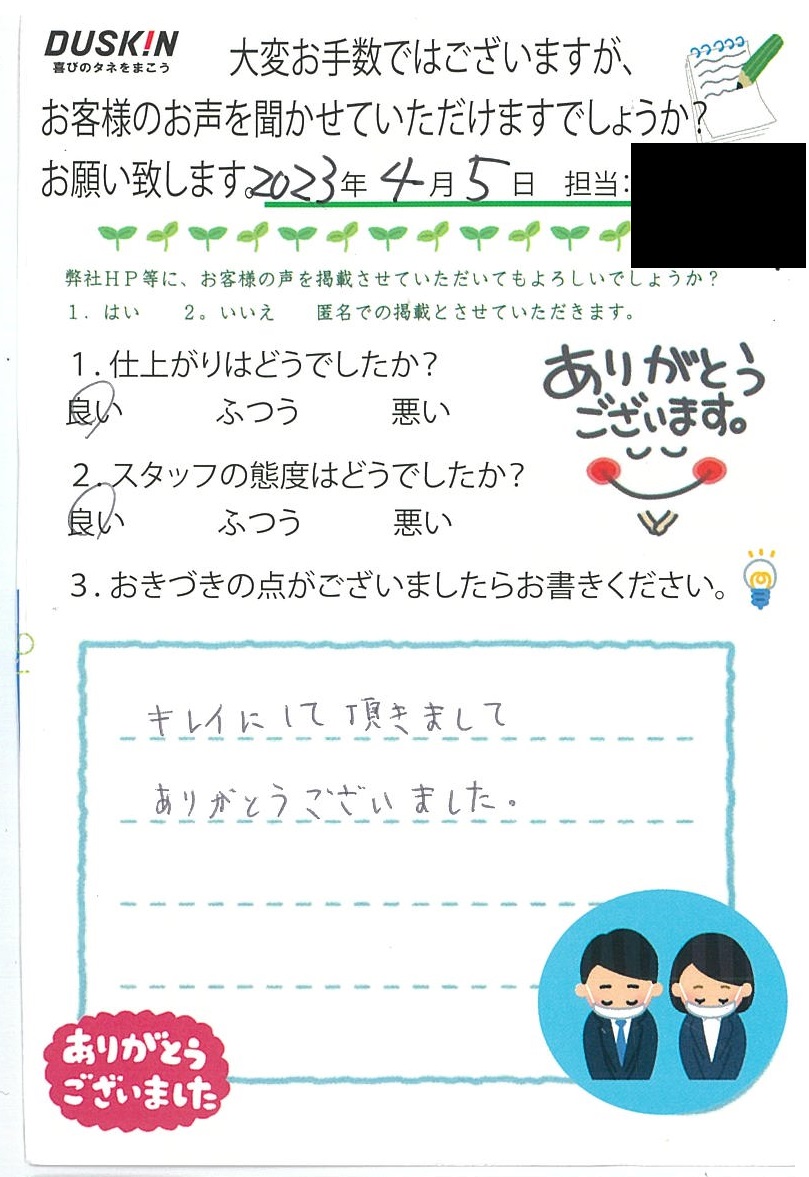 DUSKIN
喜びのタネをまこう
大変お手数ではございますが、
お客様のお声を聞かせていただけますでしょうか?
お願い致します。2023年 4月 5日 担当:
弊社HP等に、お客様の声を掲載させていただいてもよろしいでしょうか?
1. はい 2。いいえ 匿名での掲載とさせていただきます。
1. 仕上がりはどうでしたか?
良い ふつう 悪い
ありがとう
ございます。
2. スタッフの態度はどうでしたか?
良い ふつう 悪い
3. おきづきの点がございましたらお書きください。
キレイにして頂きまして
ありがとうございました。
ありがとう
ございました